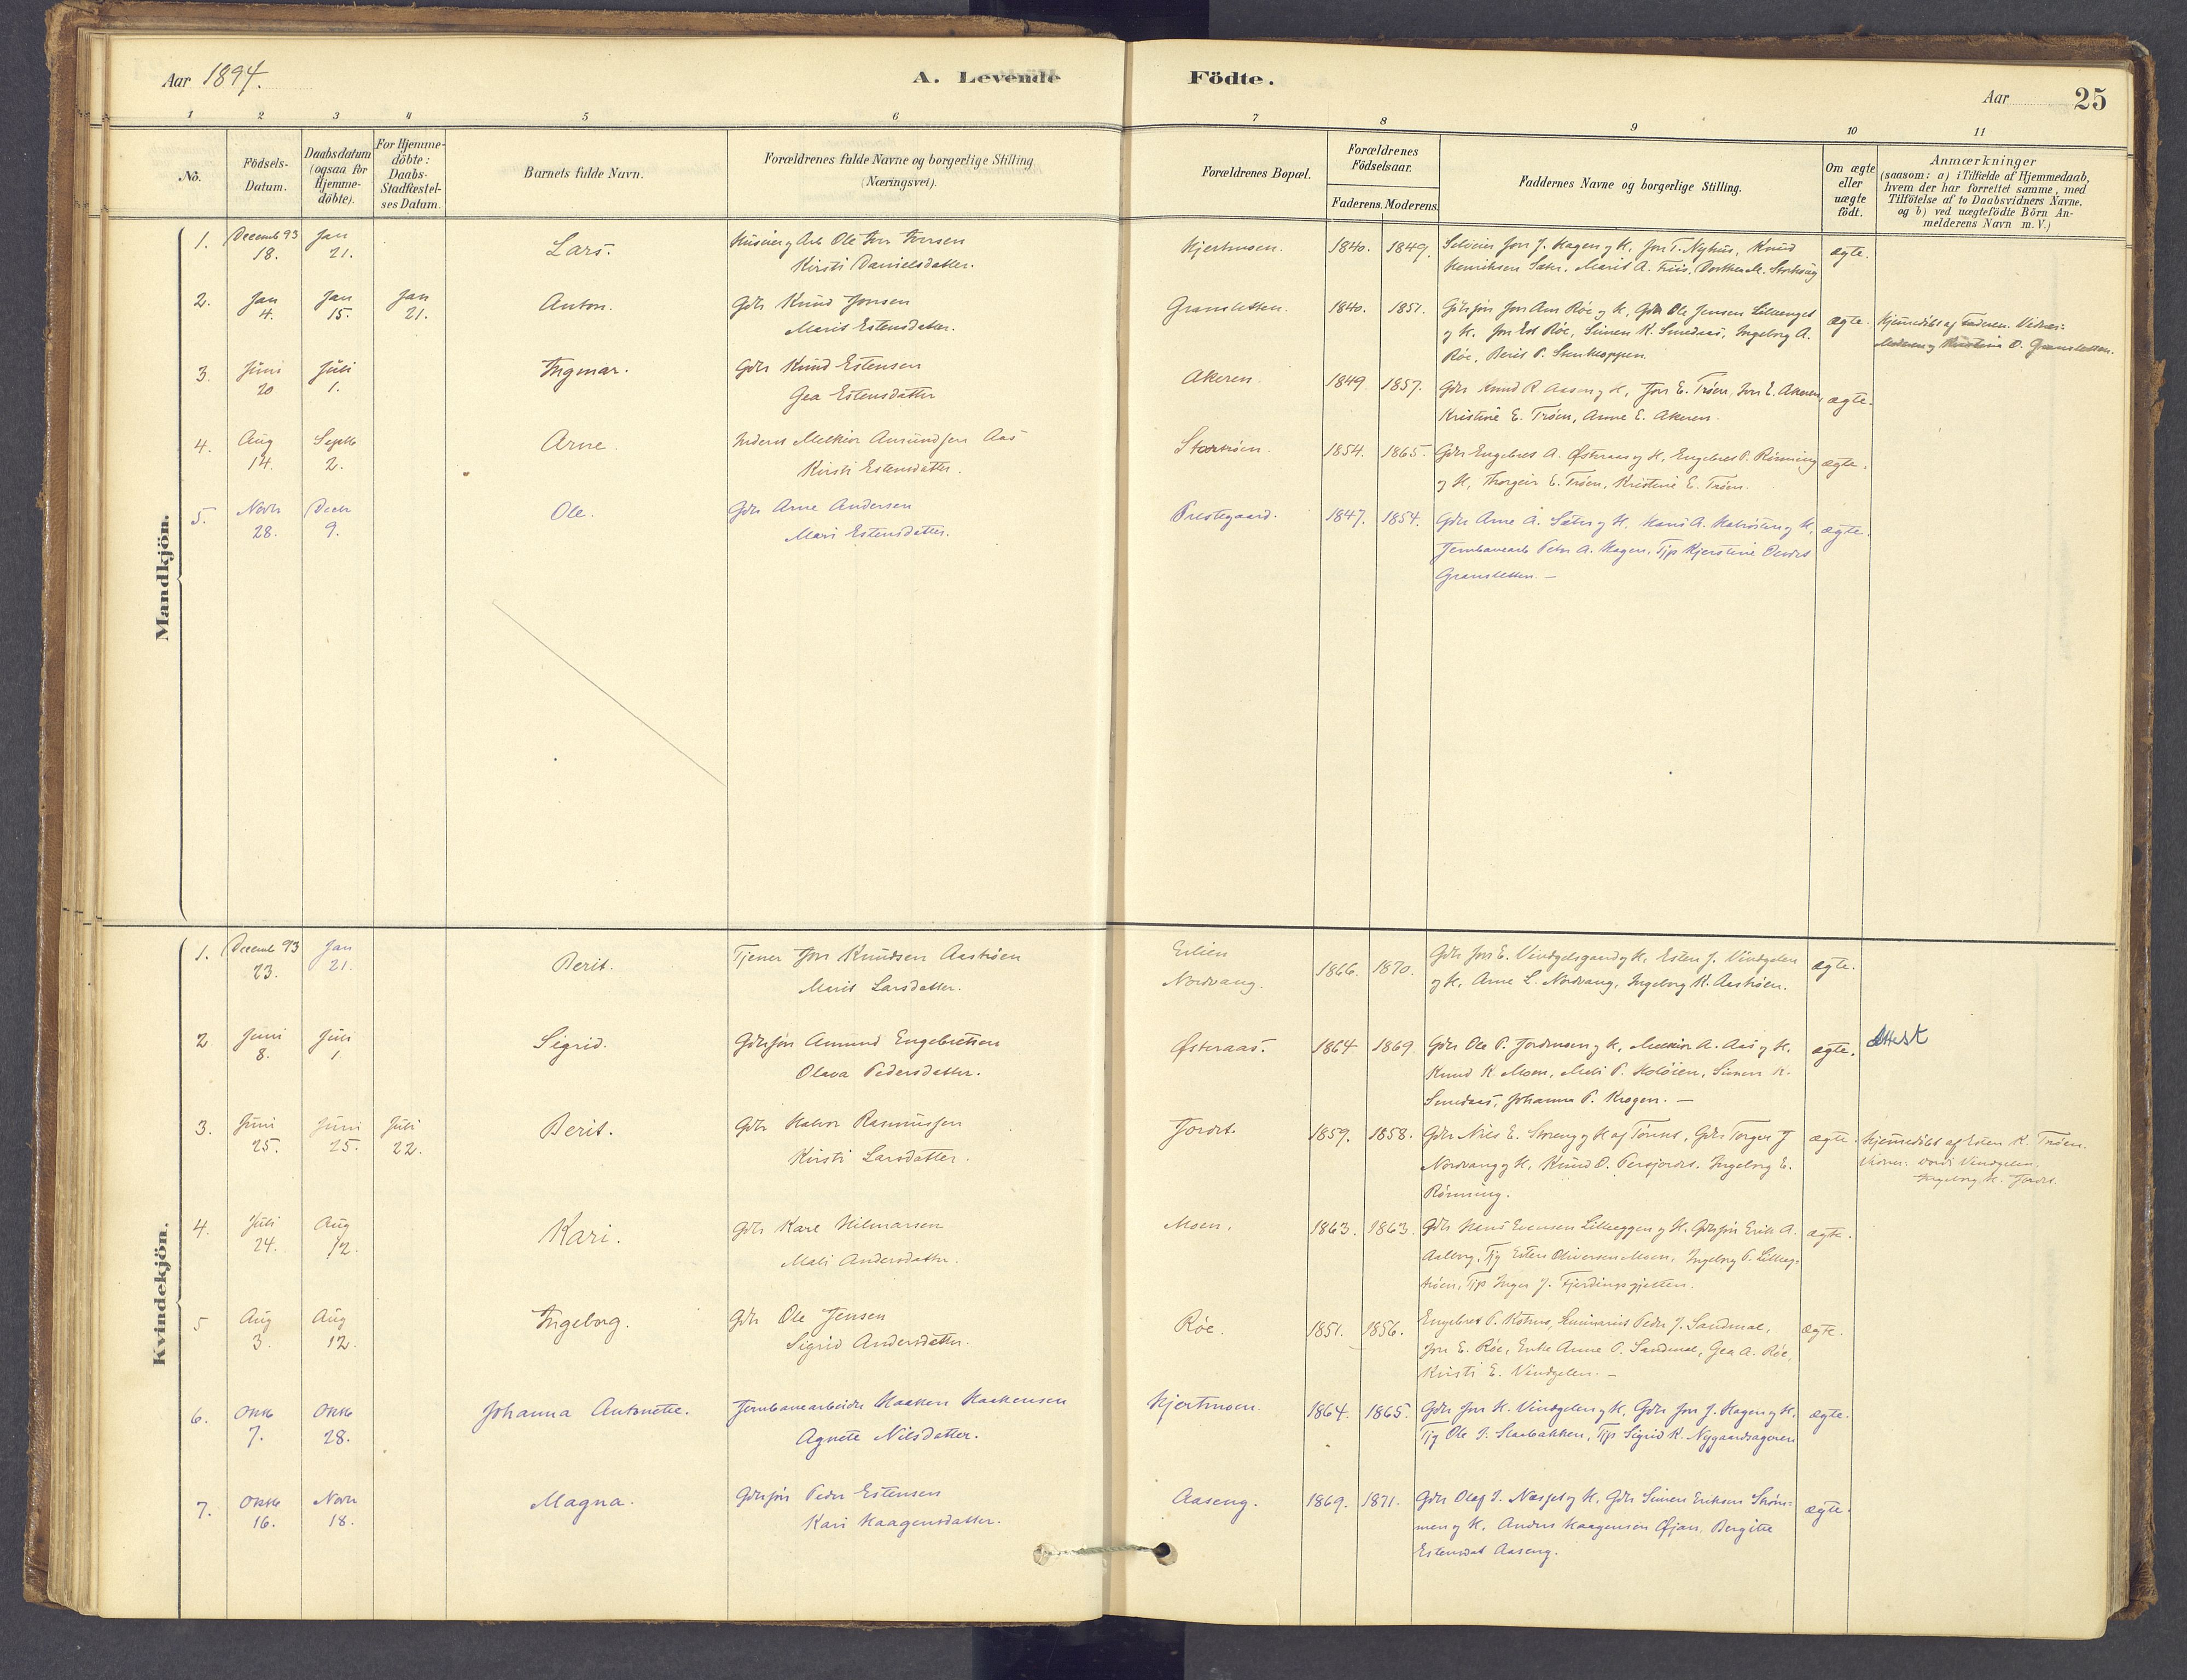 Aar 1894.
A. Levende Födte.
Aar 25
1 2 3 4 5 6 7 8 9 10 11
No.
Födsels-Datum.
Daabsdatum (ogsaa for Hjemme-döbte).
For Hjemme-döbte: Daabs-Stadfæstel-ses Datum.
Barnets fulde Navn.
Forældrenes fulde Navne og borgerlige Stilling (Næringsvei).
Forældrenes Bopæl.
Forældrenes Födselsaar.
Faderens. Moderens.
Faddernes Navne og borgerlige Stilling.
Om ægte eller uægte födt.
Anmærkninger
(saasom: a) i Tilfælde af Hjemmedaab,
hvem der har forrettet samme, med
Tilföielse af to Daabsvidners Navne.
og b) ved uægtefödte Börn An-
melderens Navn m.V.)
Mandkjön.
1. Decemb 93 18. Jan 21. Lars. Ole Iversen
Kirsti Danielsdatter. Kjertmoen. 1840. 1849. Selveier Jon J. Hagen og K, Jon T. Nyhus, Knud
Henriksen Sæter, Marit A. Friis, ægte.
2. Jan 4. Jan 15. Jan 21. Anton. Gbr Knud Jonsen
Marit Estensdatter. Gransletten. 1840. 1851. Røe og K, Gbr Ole Jensen Lilleenget
og K. Jon Røe, Simen K. Smedaas, Ingeborg A.
Røe, Berit P. ægte. Hjemmedöbt af Faderen. Vidner:
O. Gransletten.
3. Juni 20 Juli 1. Ingmar. Gbr Knud Estensen
Gea Estensdatter Akeren. 1849 1857. Gbr Knud R. Aasen og K, Jon E. Trøen, Jon E. Akeren,
Kristine E. Trøen, Anne E. Akeren. ægte.
4. Aug 14. Septb 2. Arne. Melkior Amundsen Aas
Kirsti Estensdatter. 1854. 1865. Gbr Engebret A. Østeraas og K, Engebret P. Rønning
og K, Thorgeir E. Trøen, Kristine E. Trøen. ægte.
5. Novbr 28. Decbr 9. Ole. Gbr Arne Andersen
Mari Estensdatter. Prestegaard. 1847. 1854. Gbr Arne A. Sæter og K, Hans A. og K,
Jernbanearb Peter A. Hagen, Tjp Kjerstine
Gransletten. — ægte.
Kvindekjön.
1. Decemb 93 23. Jan 21. Berit. Tjener Jon Knudsen Aastrøen
Marit Larsdatter. Eilien
Nordvang. 1866. 1870. Gbr Jon E. Vindgelsgaard og K, Esten J. Vindgelen
og K, Arne L. Nordvang, Ingeborg K. Aastrøen. ægte.
2 Juni 8. Juli 1 Sigrid. Gbrsøn Amund Engebretsen
Olava Pedersdatter. Østeraas. 1864 1869. Gbr Ole P. Jordmoen og K, Melkior A. Aas og K,
Knud K. Moen, Mali P. Simen K.
Smedaas, Johanna P. Krogen. — ægte. Attest
3. Juni 25. Juni 25. Juli 22. Berit. Gbr Halvor Rasmussen
Kirsti Larsdatter. Jordet. 1859. 1858. Gbr Nils E. Storeng og K af Tönset, Gbr Torger J
Nordvang og K, Knud O. Persjordet. Ingeborg E.
Rønning. ægte. Hjemmedöbt af Esten K. Trøen.
Vidner. Vindgelen.
Ingeborg H. Jordet.
4. Juli 24. Aug 12. Kari. Gbr Karl Hilmarsen
Mali Andersdatter. Moen. 1863. 1863. Gbr Hans Evensen Lilleeggen og K. Gbrsøn Erik A.
Aalborg, Tjg Esten Oliversen Moen, Ingeborg P.
Tjp Inger J. ægte.
5 Aug 3. Aug 12. Ingeborg. Gbr Ole Jensen
Sigrid Andersdatter. Røe. 1851. 1856. Engebret P. Peder J. Sandmæl,
Jon E. Røe, Enke Anne O. Sandmæl, Gea A. Røe,
Kirsti E. Vindgelen. — ægte.
6. Oktb 7. Oktb 28. Johanna Antonette. Jernbanearbeider Haaken Haakensen
Agnete Nilsdatter. Kjertmoen. 1864. 1865. Gbr Jon K. Vindgelen og K, Gbr Jon J. Hagen og K,
Tjg Ole J. Tjp Sigrid K. Nygaardsageren ægte.
7. Oktb 16. Novbr 18. Magna. Gbrsøn Peder Estensen
Kari Haagensdatter. Aaseng. 1869. 1871. Gbr Olaf J. og K, Gbr Simen Eriksen Strøm-
men og K, Anders Haagensen Øian, Bergitte
Estensdat Aaseng. ægte.